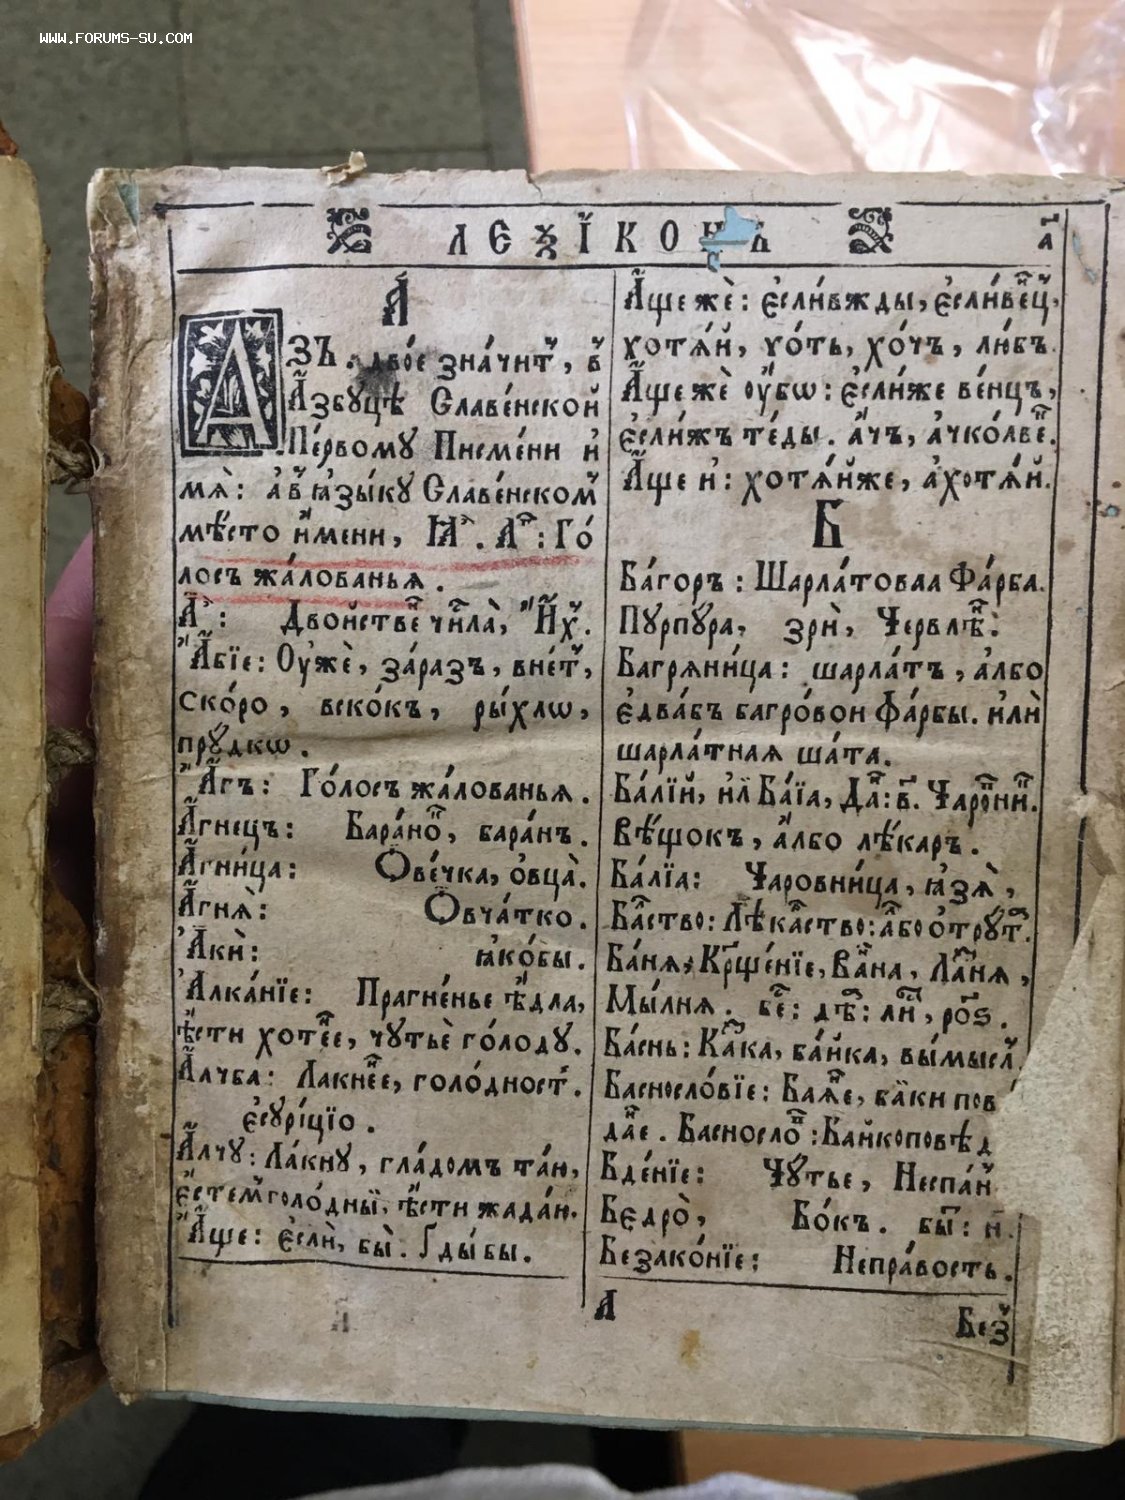 www.forums-su.com
ЛЕѮІ́КОНЪ
а҃
А҆́
АЗЪ. двоѐ зна́читъ, в
А҆збꙋцѣ Славе́нской
Пе́рвомꙋ Писме́ни и҆́
мѧ̀: а в ꙗ҆зы́кꙋ Славе́нском
мѣ́сто и҆́мени, Гѡ́
лосъ жа́лованьѧ.
Двойстве числа̀, И҆́хъ.
А҆́бїе: Оу҆жѐ, за́разъ, вне́т,
ско́ро, вско́къ, ры́хлѡ,
прꙋ́дкѡ.
А҆́гъ: Го́лосъ жа́лованьѧ.
А҆́гнецъ: Бара́но, бара́нъ.
А҆́гни́ца: Ѻ҆ве́чка, ѻ҆вца̀.
А҆́гнѧ̀: Ѻ҆вча́тко.
А҆́ки: ꙗ҆ко́бы.
А҆лка́нїе: Прагне́нье ѣ҆дла,
ѣ҆́сти хоте́е, чꙋтьѐ го́лодꙋ.
А҆́лчба: Лакне́е, голо́дност.
є҆сꙋрі́цїо.
А҆́лчꙋ: Ла́кнꙋ, гла́домъ та́ю,
є҆́стем голо́дны́й, ѣ҆́сти жада́ю.
А҆́ще: є҆слѝ, бы̀. Ґды́бы.
А҆́ще жѐ: є҆сли́вжды, є҆сли́вец,
хотѧ́й, хо́ть, хо́чъ, лю́бъ.
А҆́ще жѐ оу҆́бѡ: є҆сли́же ве́нцъ,
є҆сли́жъ те́ды. а҆́чъ, а҆чко́лве.
А҆́ще и҆: хотѧ́йже, а҆хотѧ́й.
Б
Ба́горъ: Шарла́товаѧ Фа́рба.
Пꙋрпꙋра, зрѝ, Червле.
Багрѧни́ца: шарла́тъ, а҆́лбо
є҆два́бъ багро́вои фа́рбы. и҆лѝ
шарла́тнаѧ ша́та.
Ба́лїй, ил Ба́їа, Да: в҃. Чаро ни.
Вѣ́щокъ, а҆́лбо лѣ́каръ.
Ба́лїа: Чаровни́ца, ꙗ҆зѧ̀,
Баство: Лѣкаство: або о҆трꙋт.
Ба́нѧ, Крще́нїе, Ва́на, Ла́знѧ,
Мы́лнѧ.
Ба́снь: Казка, ба́йка, вы́мысл.
Басносло́вїе: Баѧ́е, байки пов
дае. Баснослов: Байкоповѣд
Бдѣ́нїе: Чꙋ́тье, Неспа́н
Бедро̀, Бо́къ. бы: и.
Безако́нїе: Непра́вость.
А
Без